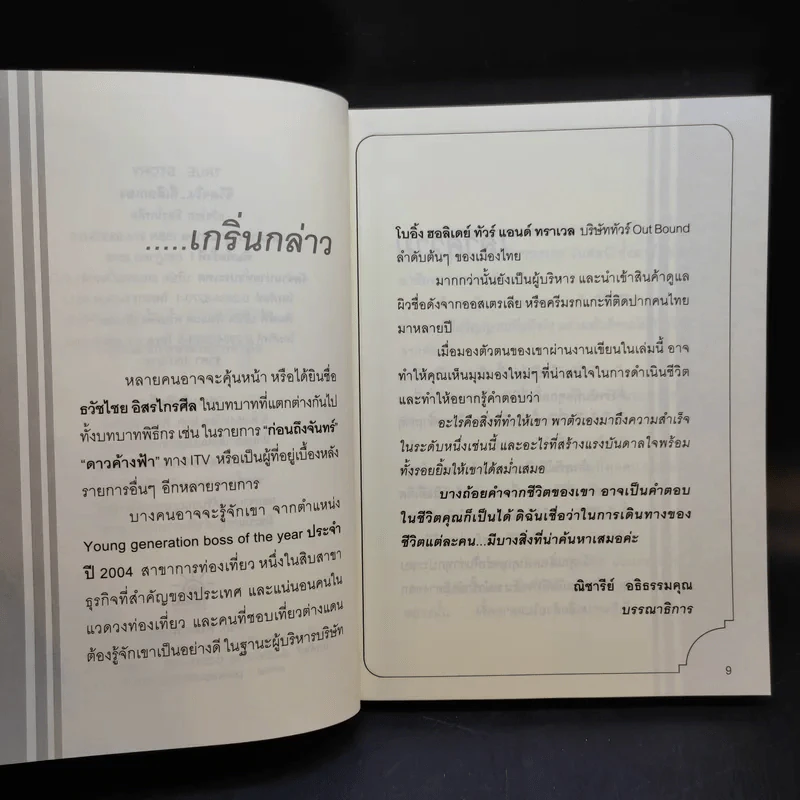 .....เกริ่นกล่าว
หลายคนอาจจะคุ้นหน้า หรือได้ยินชื่อ
ธวัชไชย อิสรไกรศีล ในบทบาทที่แตกต่างกันไป
ทั้งบทบาทพิธีกร เช่น ในรายการ "ก่อนถึงจันทร์"
"ดาวค้างฟ้า" ทาง ITV หรือเป็นผู้ที่อยู่เบื้องหลัง
รายการอื่นๆ อีกหลายรายการ
บางคนอาจจะรู้จักเขา จากตำแหน่ง
Young generation boss of the year ประจำ
ปี 2004 สาขาการท่องเที่ยว หนึ่งในสิบสาขา
ธุรกิจที่สำคัญของประเทศ และแน่นอนคนใน
แวดวงท่องเที่ยว และคนที่ชอบเที่ยวต่างแดน
ต้องรู้จักเขาเป็นอย่างดี ในฐานะผู้บริหารบริษัท
โบอิ้ง ฮอลิเดย์ ทัวร์ แอนด์ ทราเวล บริษัททัวร์ Out Bound
ลำดับต้นๆ ของเมืองไทย
มากกว่านั้นยังเป็นผู้บริหาร และนำเข้าสินค้าดูแล
ผิวชื่อดังจากออสเตรเลีย หรือครีมรกแกะที่ติดปากคนไทย
มาหลายปี
เมื่อมองตัวตนของเขาผ่านงานเขียนในเล่มนี้ อาจ
ทำให้คุณเห็นมุมมองใหม่ๆ ที่น่าสนใจในการดำเนินชีวิต
และทำให้อยากรู้คำตอบว่า
อะไรคือสิ่งที่ทำให้เขา พาตัวเองมาถึงความสำเร็จ
ในระดับหนึ่งเช่นนี้ และอะไรที่สร้างแรงบันดาลใจพร้อม
ทั้งรอยยิ้มให้เขาได้สม่ำเสมอ
บางถ้อยคำจากชีวิตของเขา อาจเป็นคำตอบ
ในชีวิตคุณก็เป็นได้ ดิฉันเชื่อว่าในการเดินทางของ
ชีวิตแต่ละคน...มีบางสิ่งที่น่าค้นหาเสมอค่ะ
ณิชารีย์ อธิธรรมคุณ
บรรณาธิการ
9